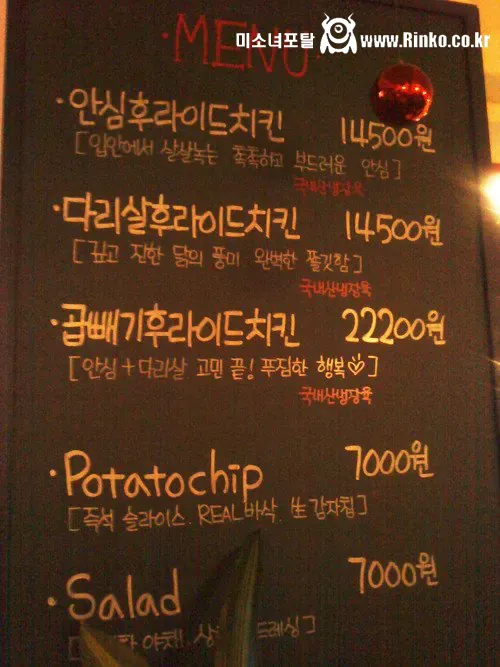 미소녀포탈 www.Rinko.co.kr
·MENU·
·안심후라이드치킨 14500원
[입안에서 살살녹는 촉촉하고 부드러운 안심]
국내산냉장육
·다리살후라이드치킨 14500원
[깊고 진한 닭의 풍미 완벽한 쫄깃함]
국내산냉장육
·곱빼기후라이드치킨 22200원
[안심+다리살 고민 끝! 푸짐한 행복♡]
국내산냉장육
·Potatochip 7000원
[즉석 슬라이스. REAL바삭. 生감자칩]
·Salad 7000원
[한 야채! 상 드레싱]